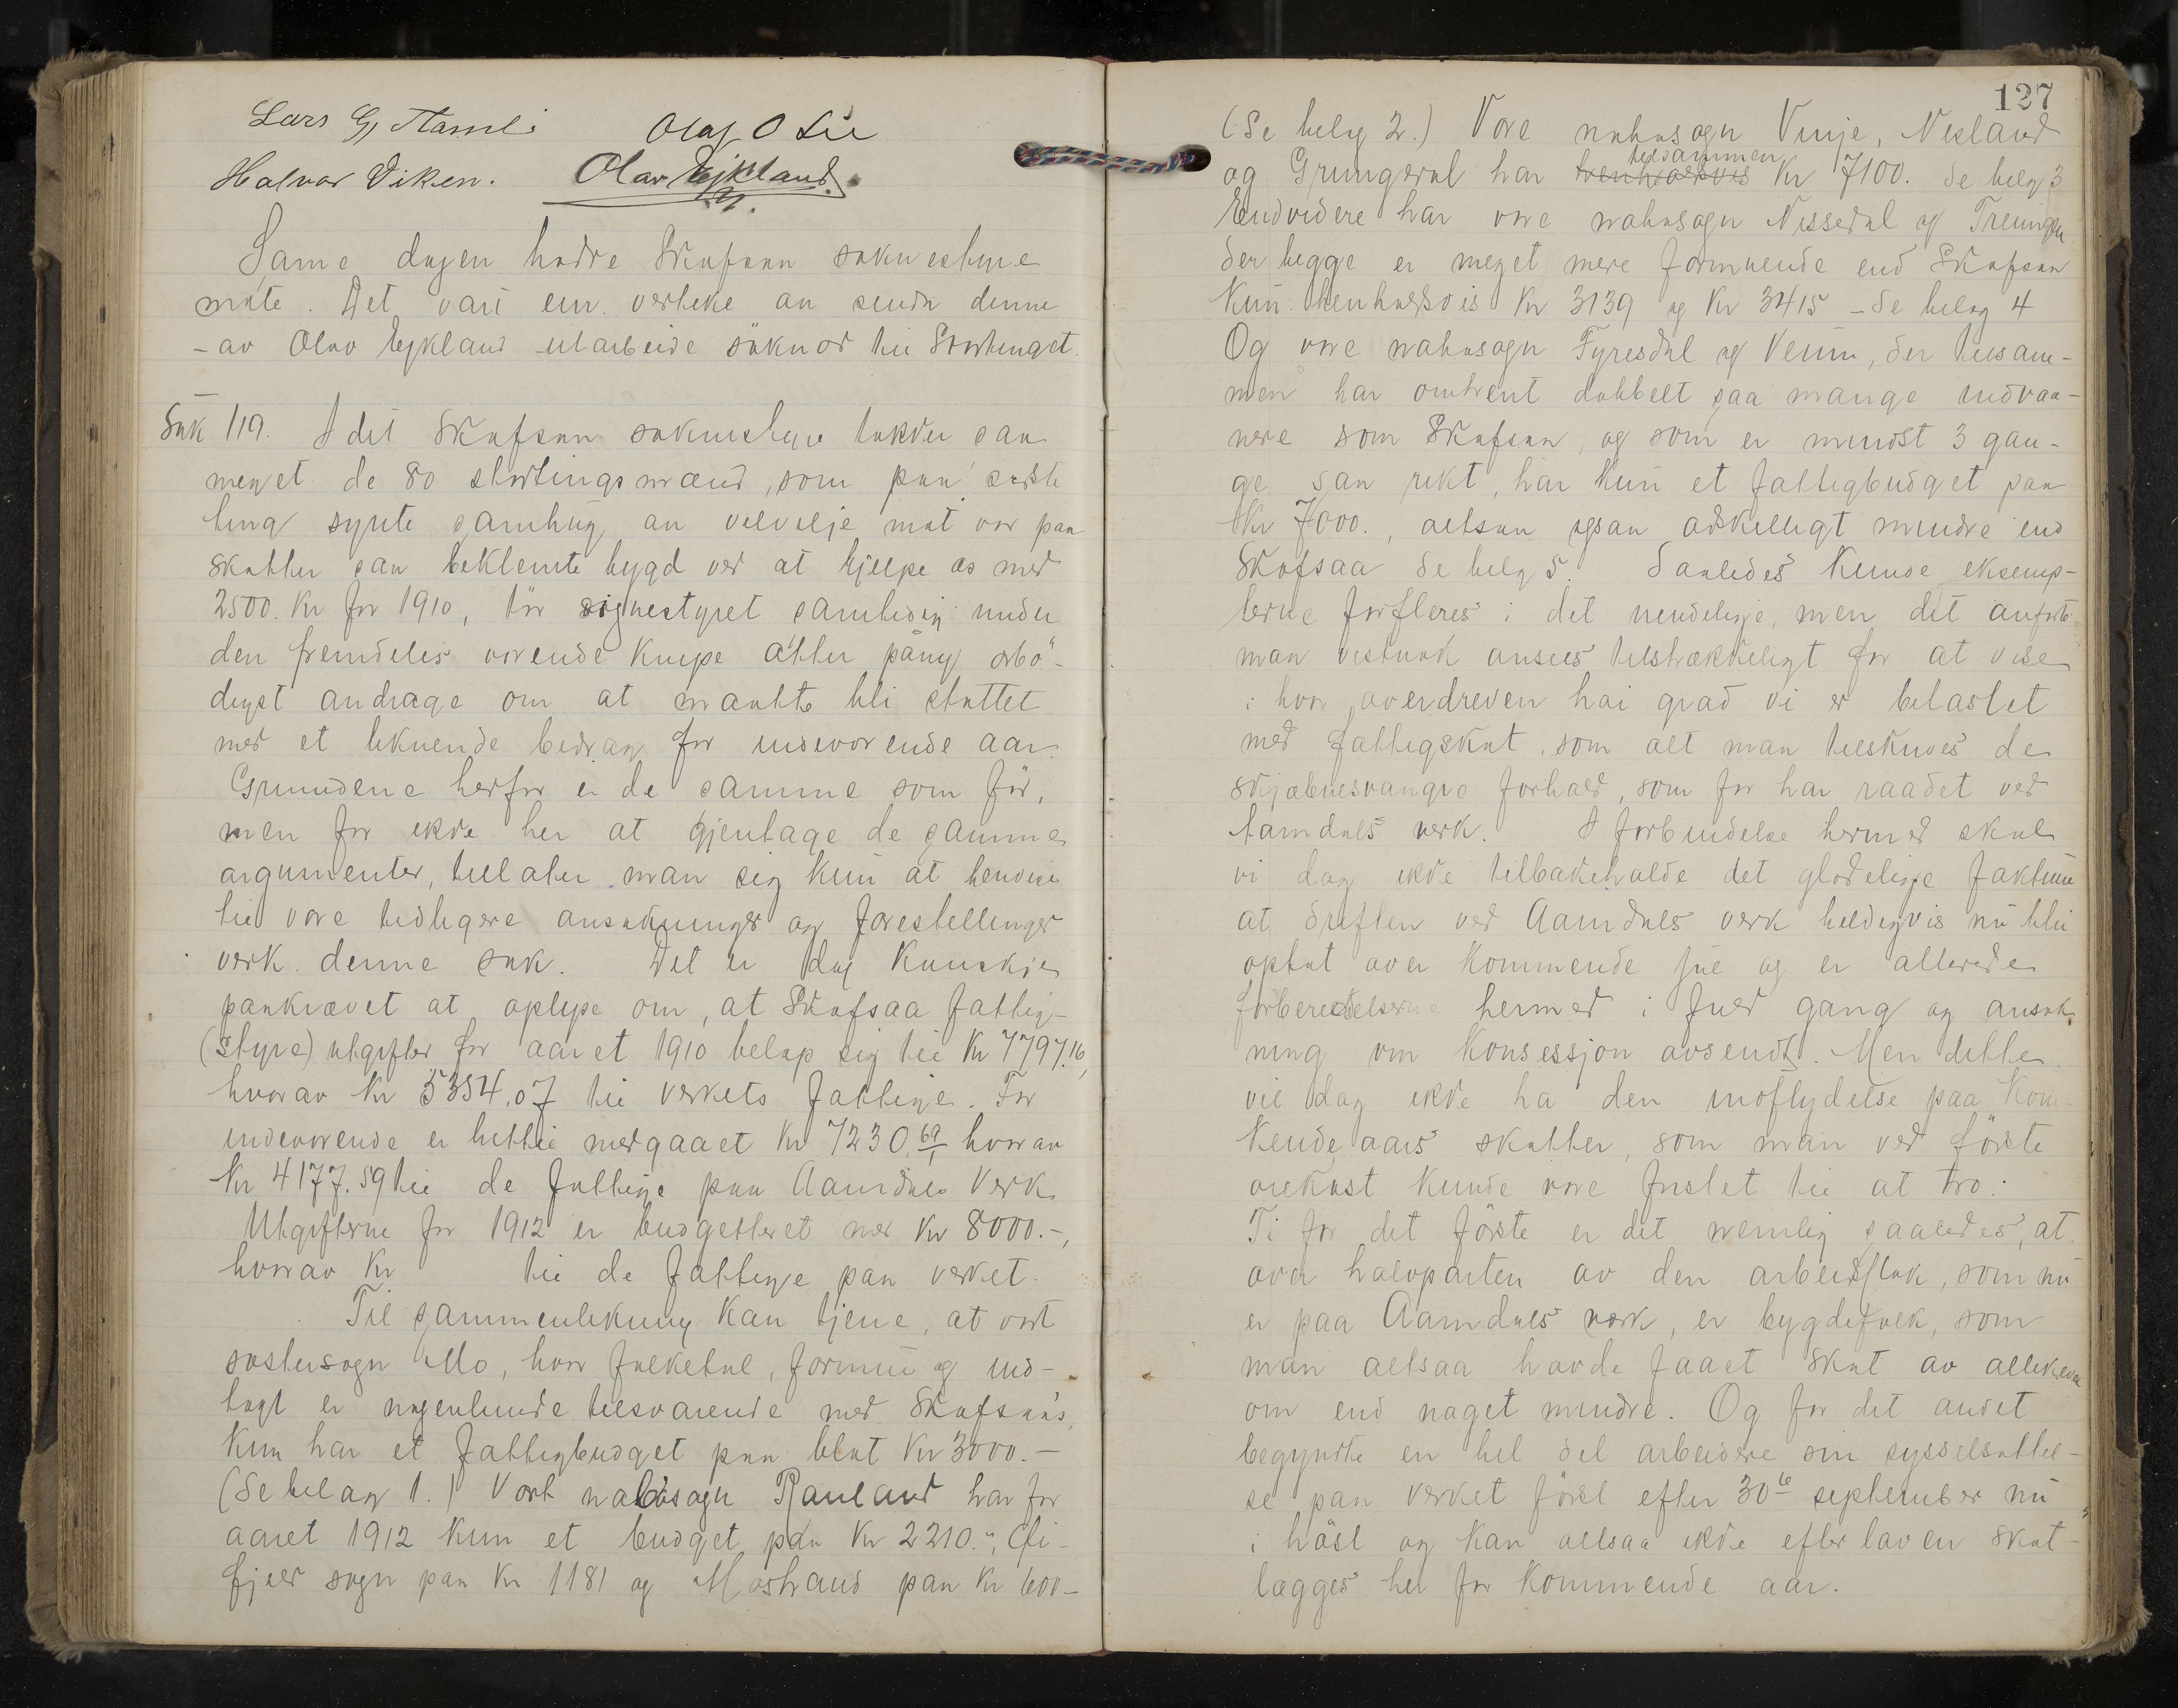 Lars G. Hamli Olaf O Lie
Halvor Viken. Olav Eikland.
Same dagen hadde Skafsaa soknestyre
møte. Det vart ein. vedteke aa senda denne
- av Olav Eykland utarbeide søknad til Stortinget.
Sak 119. I det Skafsaa soknestyre takker saa
meget de 80 stortingsmænd, som paa sidste
ting synte samhug aa velvilje mot vor paa
skatter saa beklemte bygd ved at hjelpe os med
2500. Kr for 1910, tør sognestyret samtidig under
den fremdeles værende knipe atter påny ærbö-
digst andrage om at maatte bli støttet
med et liknende bedrag for indeværende aar.
Grundene herfor er de samme som før,
men for ikke her at gjentage de samme
argumenter, tillater man sig kun at henvise
til vore tidligere ansøkninger og forestellinger
vedk. denne sak. Det er dog kanskje
paakrævet at oplyse om, at Skafsaa fattig-
(styre) utgifter for aaret 1910 beløp sig til Kr 7797.16,
hvorav Kr 5354,07 til verkets fattige. For
indeværende er hittil medgaaet Kr 7230,69 hvorav
Kr 4177.59 til de fattige paa Aamdals Verk
Utgifterne for 1912 er budgetteret med Kr 8000.-,
hvorav Kr til de fattige paa verket.
Til sammenlikning kan tjene, at vort
søstersogn Mo, hvor folketal, formue og ind-
tægt er nogenlunde tilsvarende med Skafsaa's,
kun har et fattigbudget paa blot Kr 3000.-
(Se bilag 1.) Vort nabosogn Rauland har for
aaret 1912 kun et budget paa Kr 2210.-,
fjeld sogn paa Kr 1181 og Møstrand paa Kr 600-
127
(Se bilag 2.) Vore nabosogn Vinje, Nesland
tilsammen
og Grungedal har henholdsvis Kr 7100. Se bilag 3
Endvidere har vore nabosogn Nissedal og Treungen
der begge er meget mere formuende end Skafsaa
kun henholdsvis Kr 3139 og Kr 3415 - Se bilag 4
Og vore nabosogn Fyresdal og Veum, der tilsam-
men har omtrent dobbelt saa mange indvaa-
nere som Skafsaa, og som er mindst 3 gan-
ge saa rikt, har kun et fattigbudget paa
Kr 7000., altsaa ogsaa adskilligt mindre end
Skafsaa Se bilag 5. Saaledes kunde eksemp-
lerne forfleres i det uendelige, men det anførte
man vistnok ansees tilstrækkeligt for at vise
i hvor overdreven høi grad vi er belastet
med fattigskat, som alt man tilskrives de
skjæbnesvangre forhold, som før har raadet ved
Aamdals verk. I forbindelse hermed skal
vi dog ikke tilbakeholde det glædelige faktum
at driften ved Aamdals verk heldigvis nu blir
optat over kommende jul og er allerede
forberedelserne hermed i fuld gang og ansøk-
ning om Konsessjon avsendt. Men dette
vil dog ikke ha den indflydelse paa kom-
mende aars skatter, som man ved første
øiekast kunde være fristet til at tro.
Ti for det første er det nemlig saaledes, at
over halvparten av den arbeidsflok, som nu
er paa Aamdals verk, er bygdefolk, som
man altsaa havde faaet skat av allikevel
om end noget mindre. Og for det andet
begyndte en hel del arbeidere sin sysselsættel-
se paa verket først efter 30te september nu
i höst og kan altsaa ikke efter loven skat-
lægges her for kommende aar.